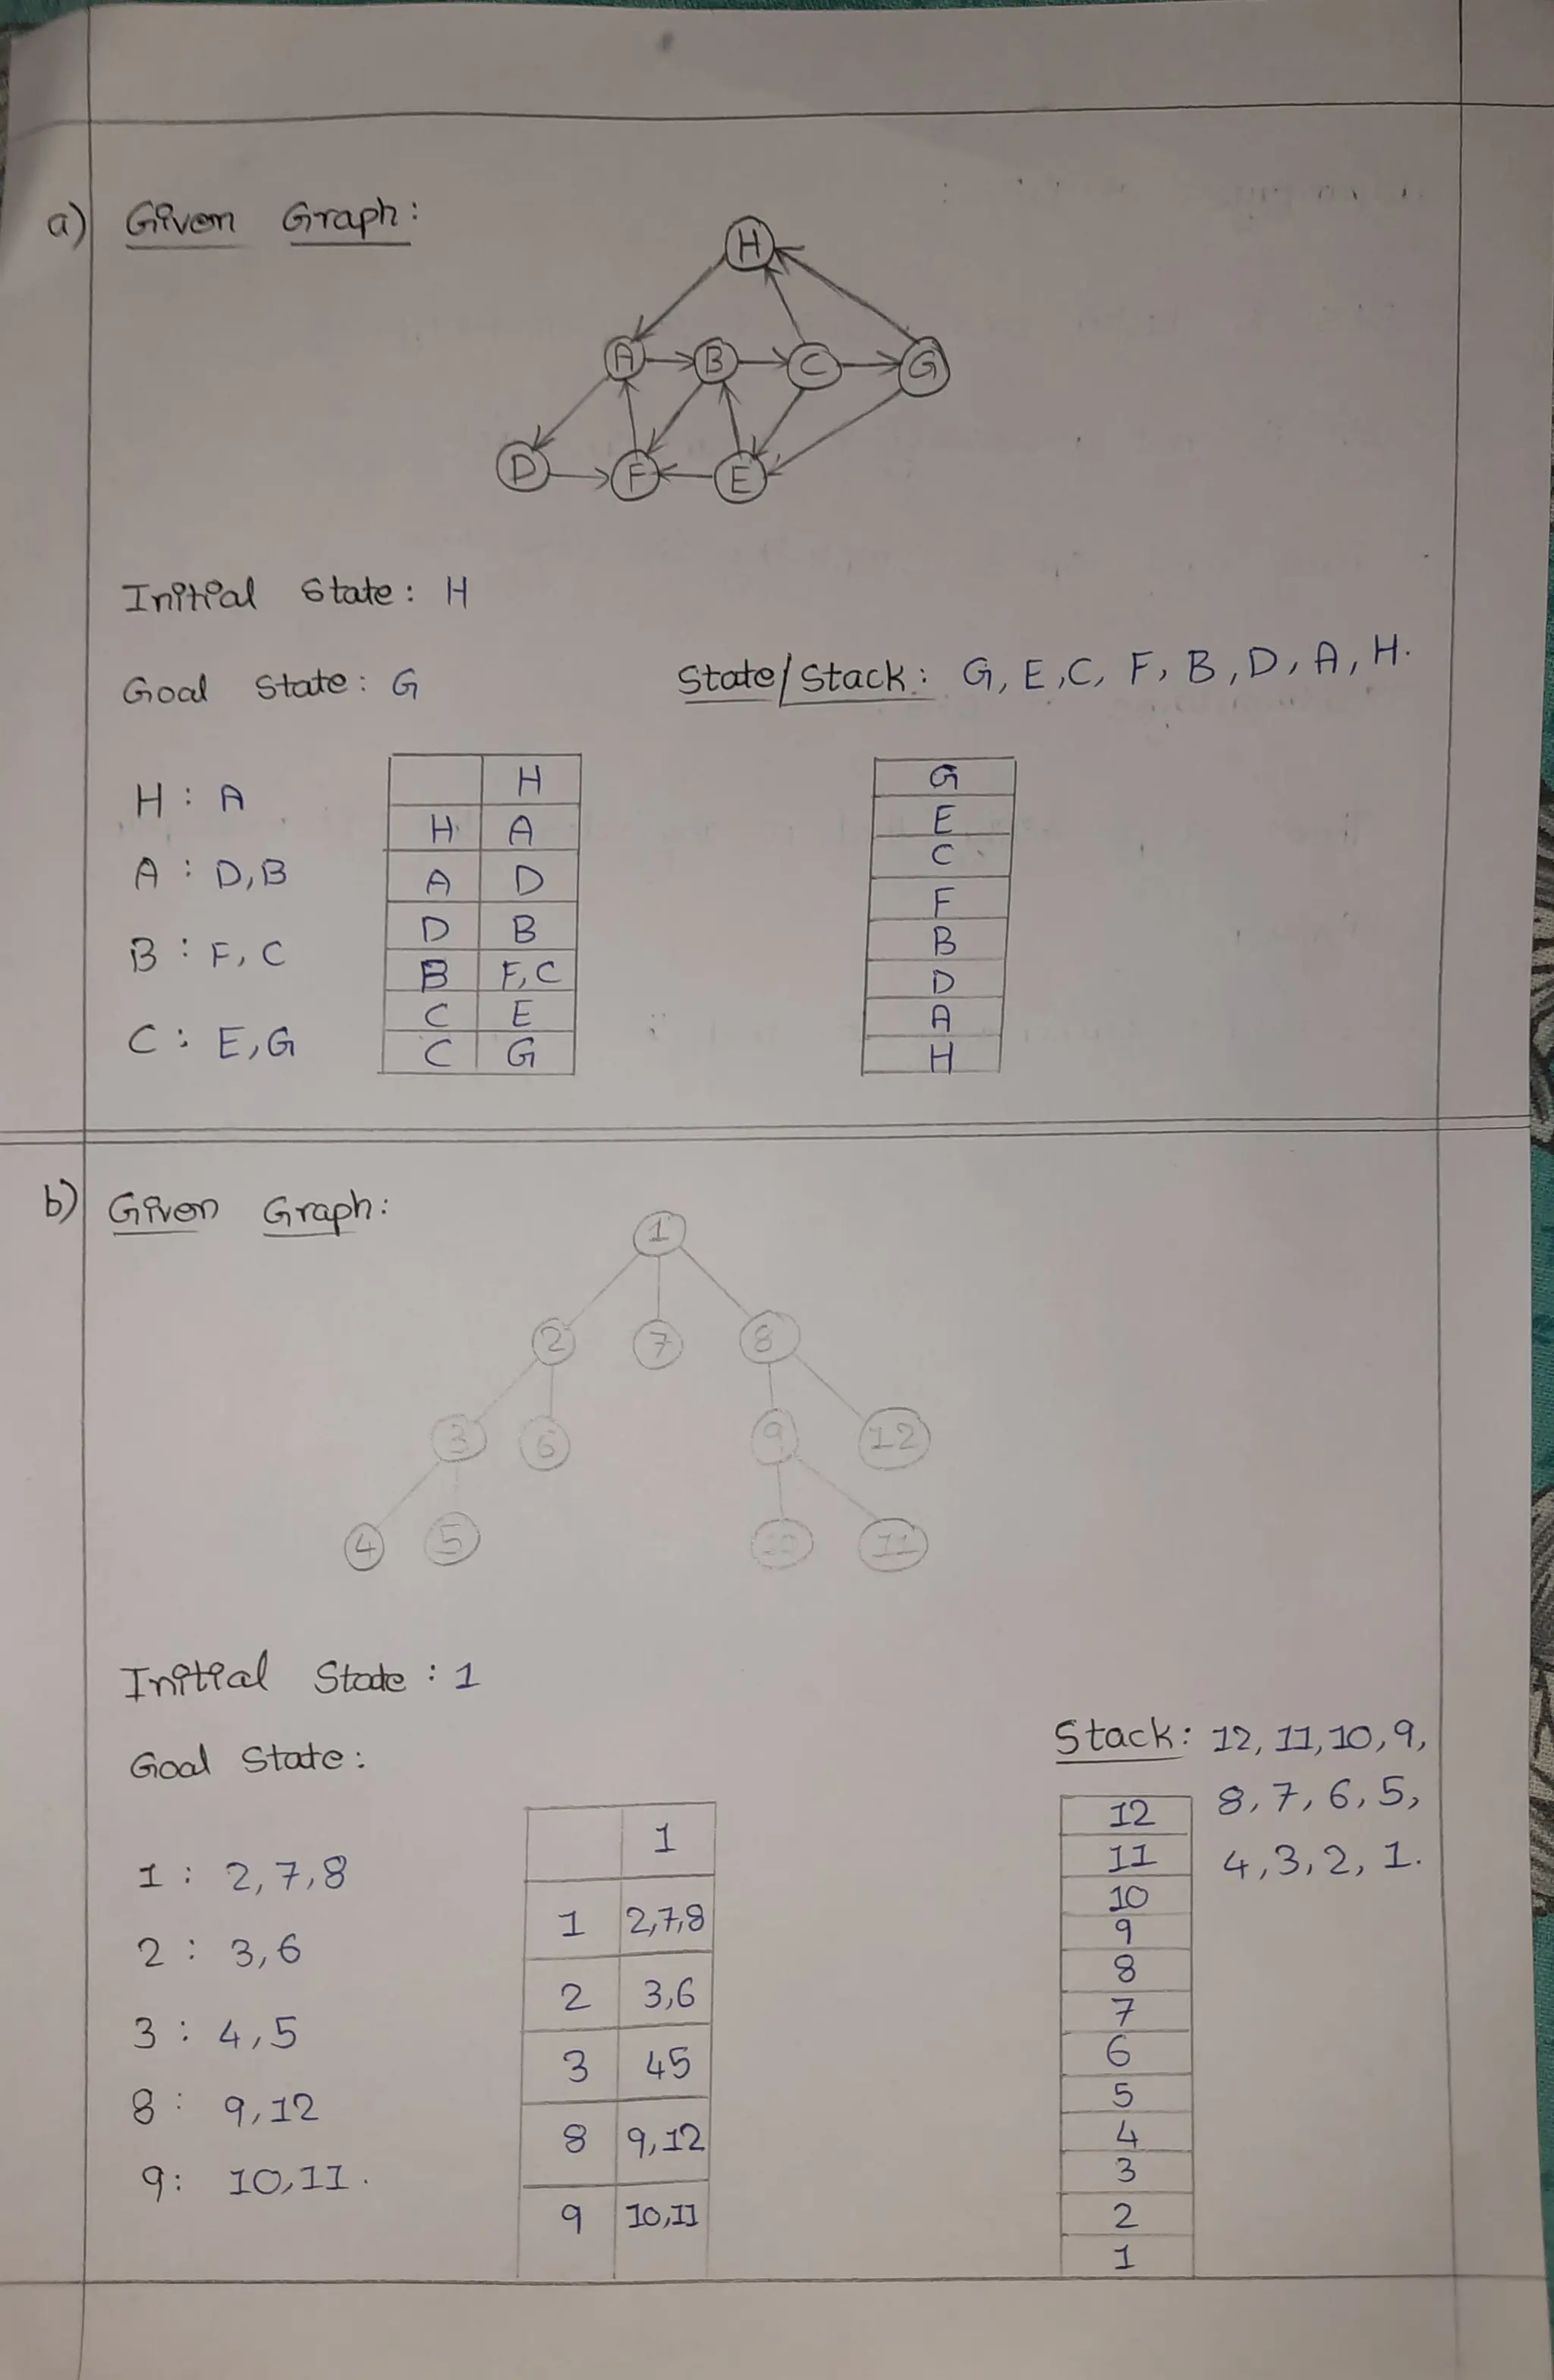 a) Given Graph:
H
A B C G
D F E
Initial State: H
Goal State: G
State/Stack: G, E, C, F, B, D, A, H.
H : A
A : D, B
B : F, C
C : E, G
H
H A
A D
D B
B F, C
C E
C G
G
E
C
F
B
D
A
H
b) Given Graph:
1
2 7 8
3 6 9 12
4 5 10 11
Initial State : 1
Goal State :
1 : 2, 7, 8
2 : 3, 6
3 : 4, 5
8 : 9, 12
9 : 10, 11.
1
1 2,7,8
2 3,6
3 45
8 9,12
9 10,11
Stack: 12, 11, 10, 9,
8, 7, 6, 5,
4, 3, 2, 1.
12
11
10
9
8
7
6
5
4
3
2
1